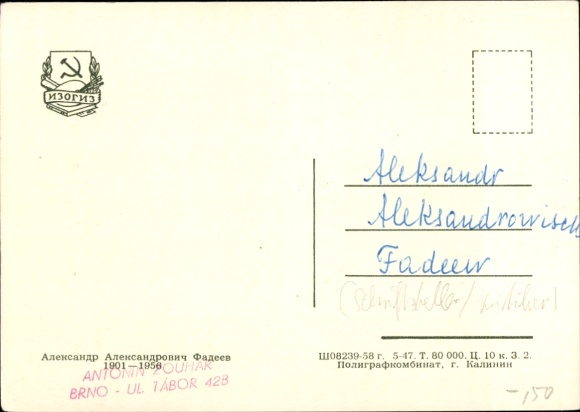 ИЗОГИЗ
Aleksandr
Aleksandrowisch
Fadeew
(Schriftsteller/Kritiker)
Александр Александрович Фадеев
1901—1956
ANTONÍN ZOUHAR
BRNO - UL TÁBOR 42B
Ш08239-58 г. 5-47. Т. 80 000. Ц. 10 к. З. 2.
Полиграфкомбинат, г. Калинин
-,50